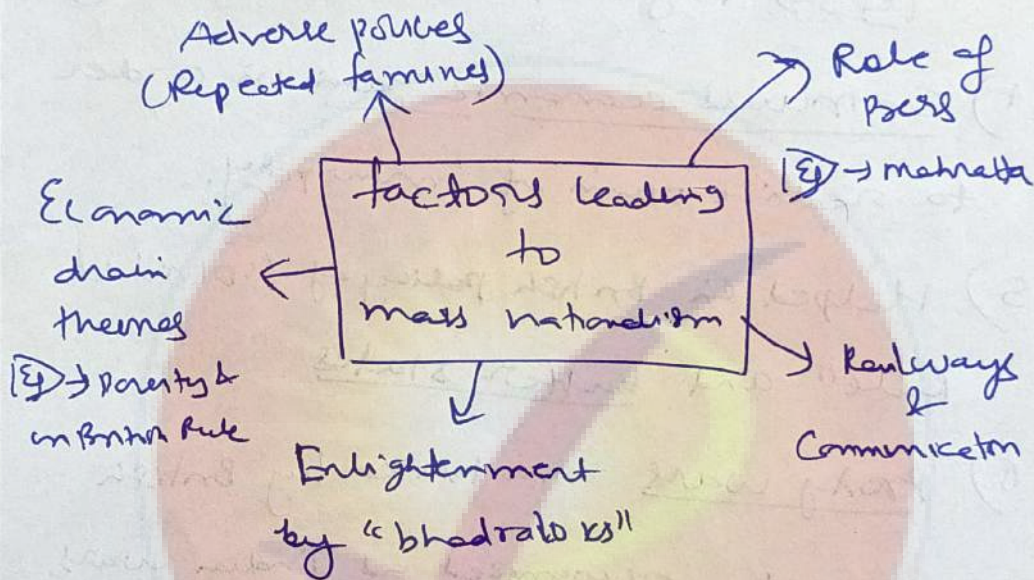 Adverse policies
(Repeated famines)
Role of
Press
Eg → mahratta
factors leading
to
mass nationalism
Economic
drain
theories
Eg → Poverty &
un British Rule
Railways
&
Communication
Enlightenment
by "bhadraloks"